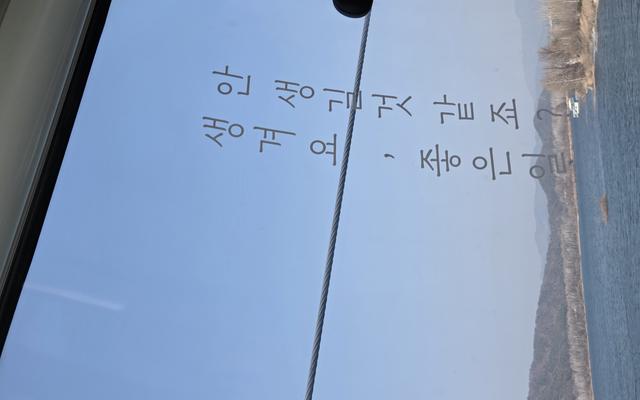 안 생길것 같죠?
생겨요, 좋은일